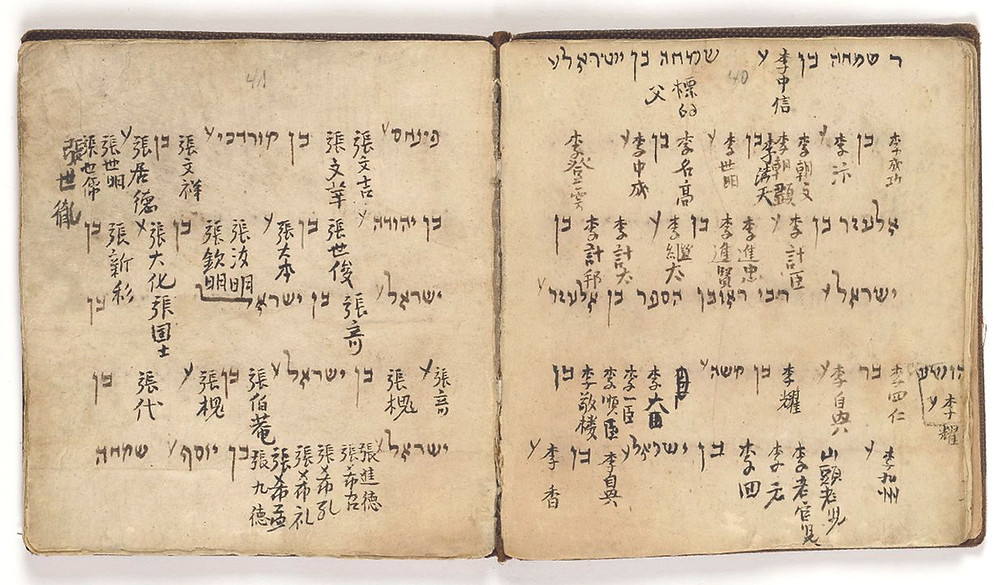 ר שמחה בן 李中信 ע שמחה בן ישראל ע
40
父
李成功 בן 李朝文 李朝顯 李滿天 בן 李世明 ע 李名高 בן 李中成 ע 李登雲
אלעזר בן 李計臣 ע 李進忠 李進賢 בן 李繼太 ע 李計太 李計邦 בן
ישראל ע רבי ראובן הספר בן אלעזר ע
李耀
李四仁 בר 李自興 ע 李耀 בן משה ע 李大田 李一臣 李順臣 李敬棱 בן
李加州 ע 山頭老兒 李老官兒 李元 李四 בן ישראל ע 李自興 בן 李香 ע
41
פינחס ע 張文吉 張文華 בן מורדכי ע 張文祥 בן 張居德 ע 張世明 張世儒 張世胤
בן יהודה ע 張世俊 בן 張大本 ע 張汝明 張欽明 בן 張大化 ע 張新彩 בן
ישראל ע 張奇 בן ישראל 張国士 בן
張奇 ע 張槐 בן ישראל ע 張伯菴 בן 張槐 ע 張代 בן
ישראל ע 張進德 張希召 張希孔 張希礼 張希孟 張九德 בן יוסף ע שמחה